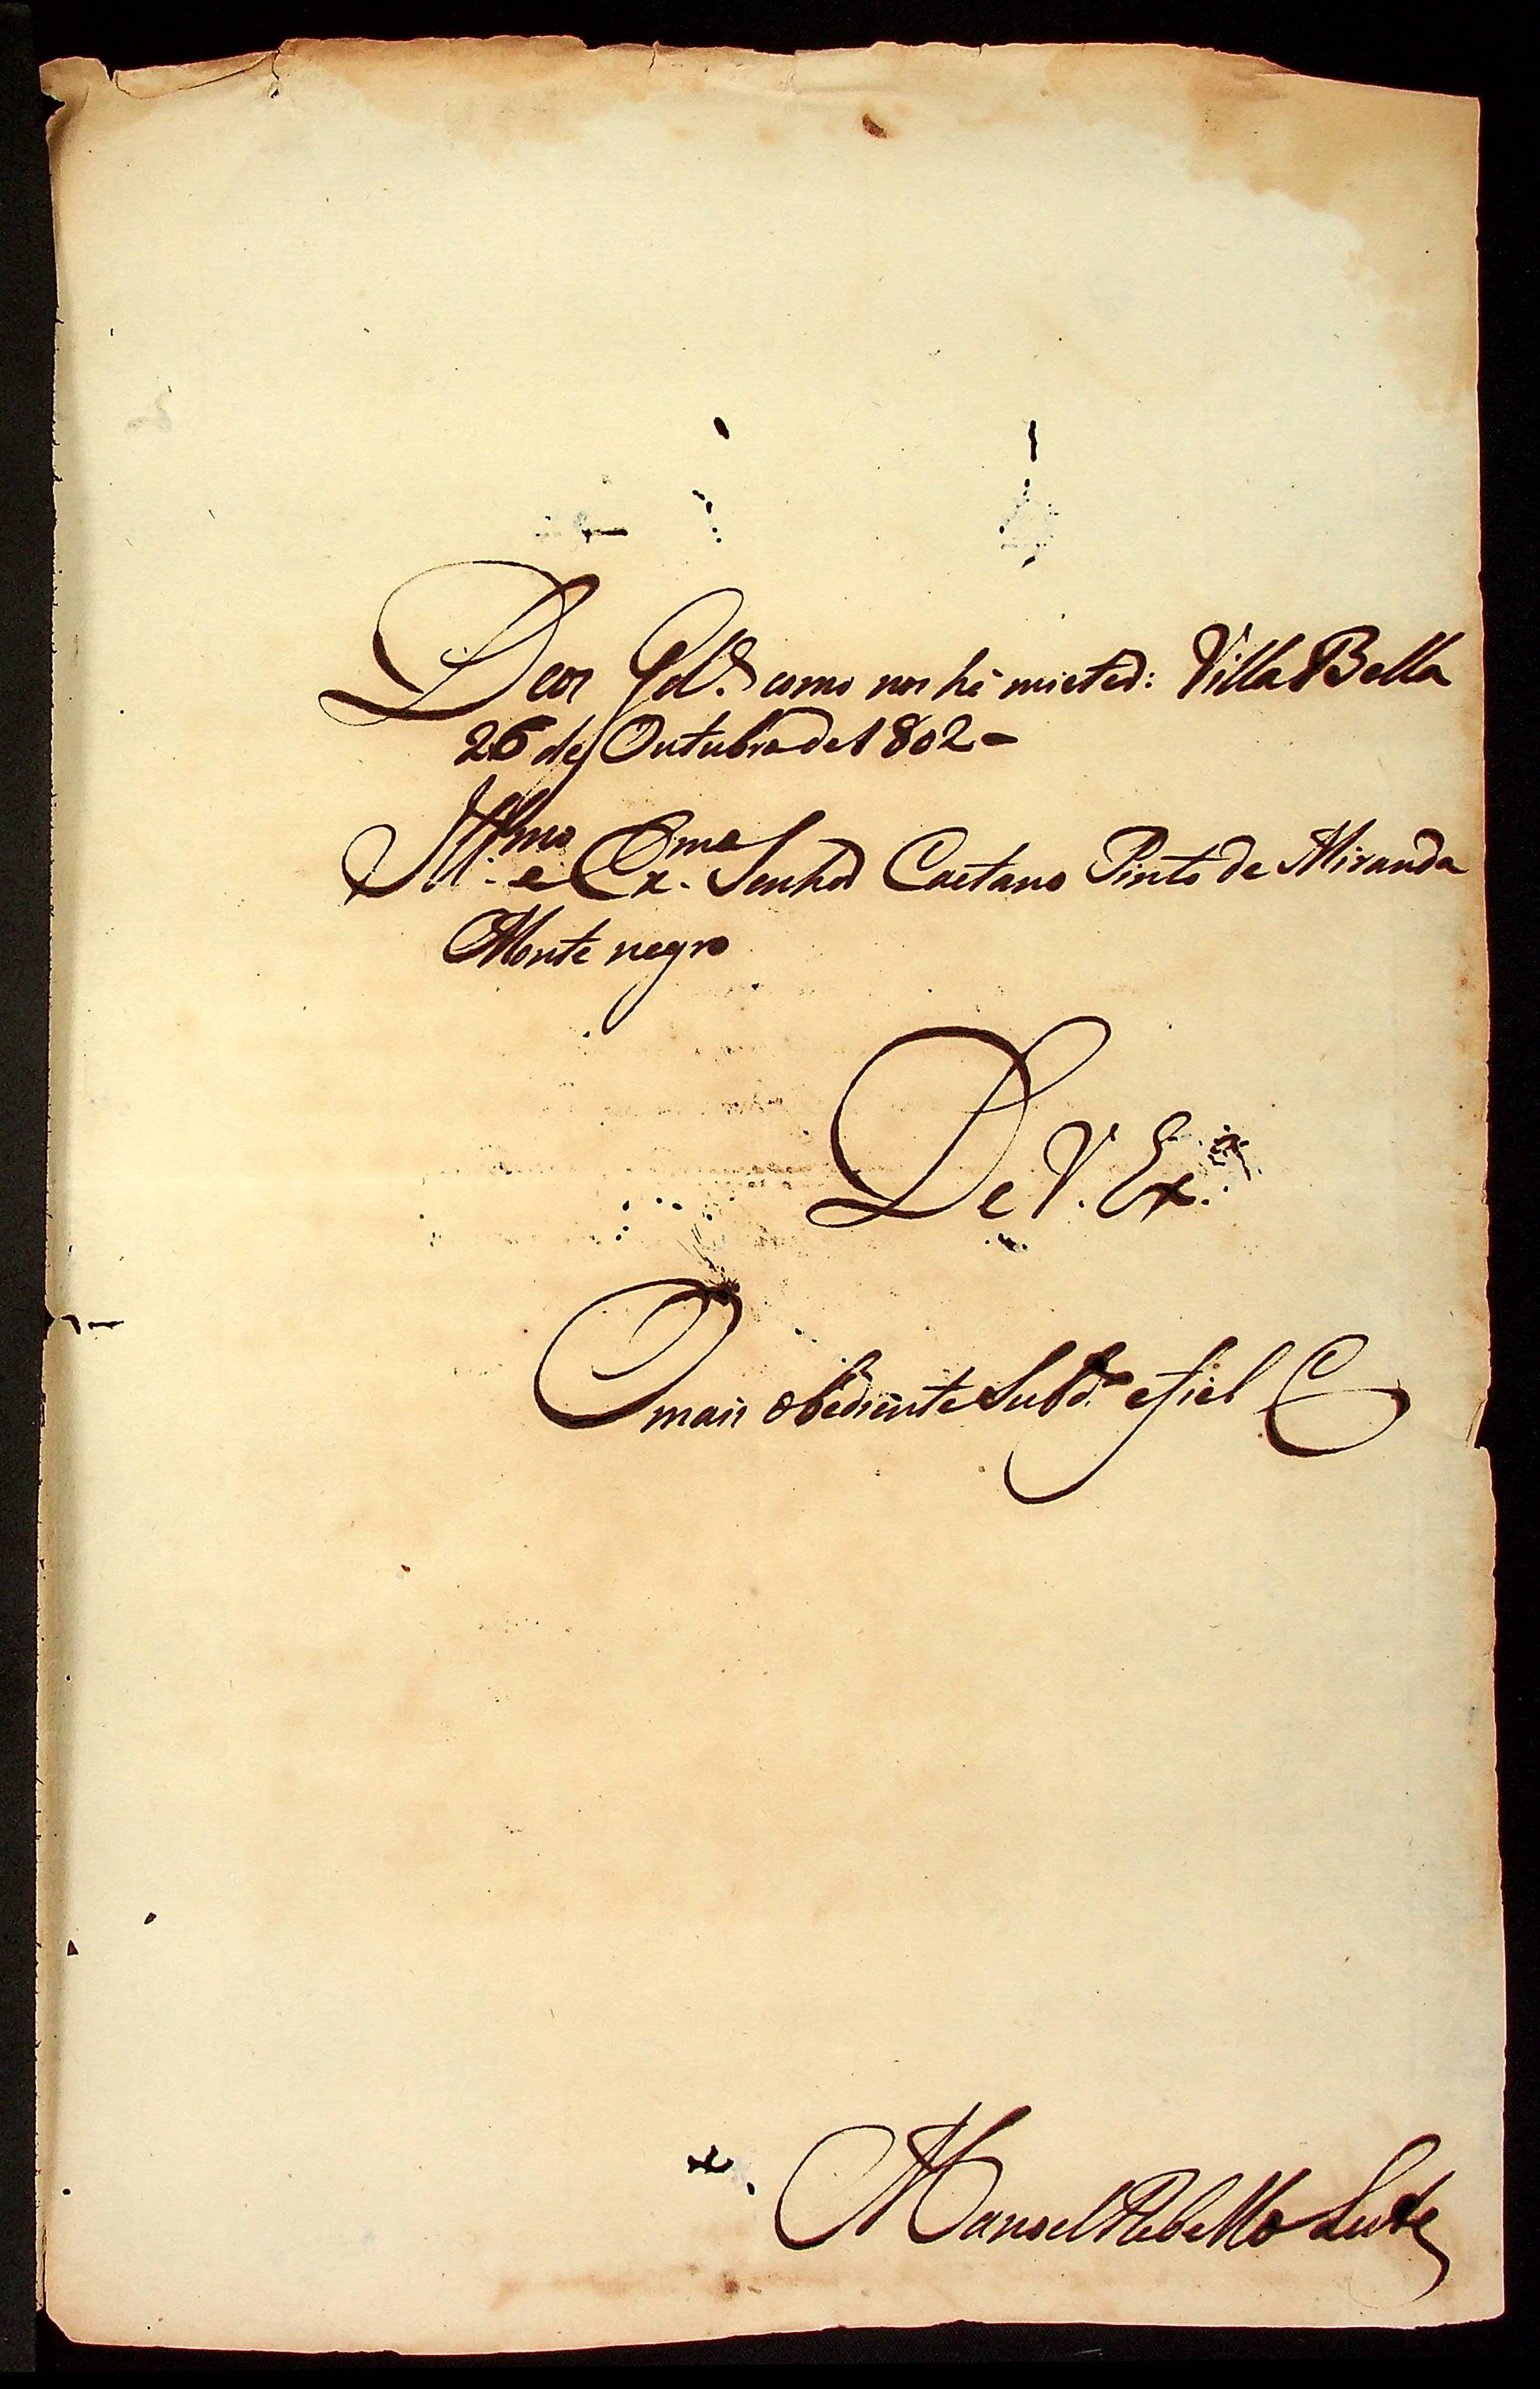 Deos G.de como nos hé misted: Villa Bella
26 de Outubro de 1802 =
Ill.mo e Ex.mo Senhod Caetano Pinto de Miranda
Monte negro
De V. Ex.a
O mais obediente Subd.o e fiel C
Manoel Rebello Leite